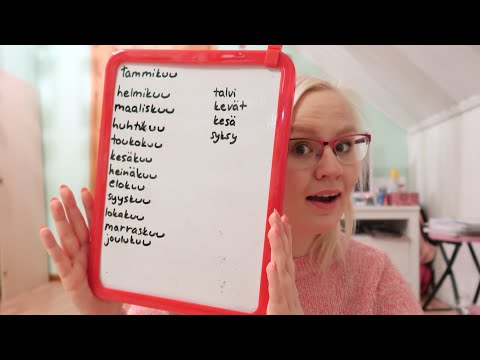 tammikuu
helmikuu
maaliskuu
huhtikuu
toukokuu
kesäkuu
heinäkuu
elokuu
syyskuu
lokakuu
marraskuu
joulukuu
talvi
kevät
kesä
syksy